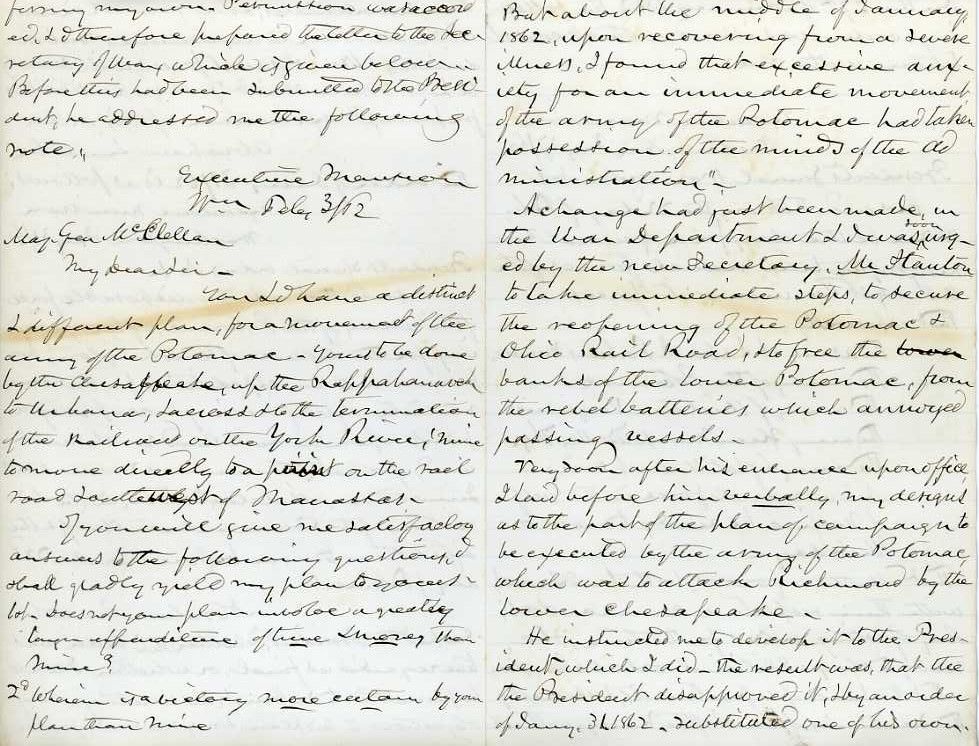 ferring my own. Permission was accord
ed, & I therefore prepared the letter to the Sec
retary of War, which is given below.
Before this had been submitted to the Presi-
dent, he addressed me the following
note,
Executive Mansion
Wn Feby 3/62
Maj. Gen McClellan
My dear Sir -
You & I have a distinct
& different plan, for a movement of the
army of the Potomac - yours to be done
by the Chesapeake, up the Rappahannock
to Urbana, & across to the termination
of the Railroad on the York River; mine
to move directly to a point on the rail
road South west of Manassas.
If you will give me satisfactory
answers to the following questions, I
shall gladly yield my plan to yours -
1st. Does not your plan involve a greatly
larger expenditure of time & money than
mine?
2d Wherein is a victory more certain by your
plan than mine
But about the middle of January
1862, upon recovering from a severe
illness, I found that excessive anx-
iety for an immediate movement
of the army of the Potomac had taken
possession of the minds of the Ad
ministration" -
A change had just been made, in
the War Department & I was soon urg-
ed by the new Secretary, Mr Stanton
to take immediate steps, to secure
the reopening of the Potomac &
Ohio Rail Road, & to free the lower
banks of the lower Potomac, from
the rebel batteries which annoyed
passing vessels -
Very soon after his entrance upon office,
I laid before him verbally, my designs
as to the part of the plan of campaign to
be executed by the army of the Potomac
which was to attack Richmond by the
lower Chesapeake -
He instructed me to develop it to the Pres-
ident, which I did - the result was, that the
the President disapproved it, & by an order
of Jany. 31. 1862 - substituted one of his own.